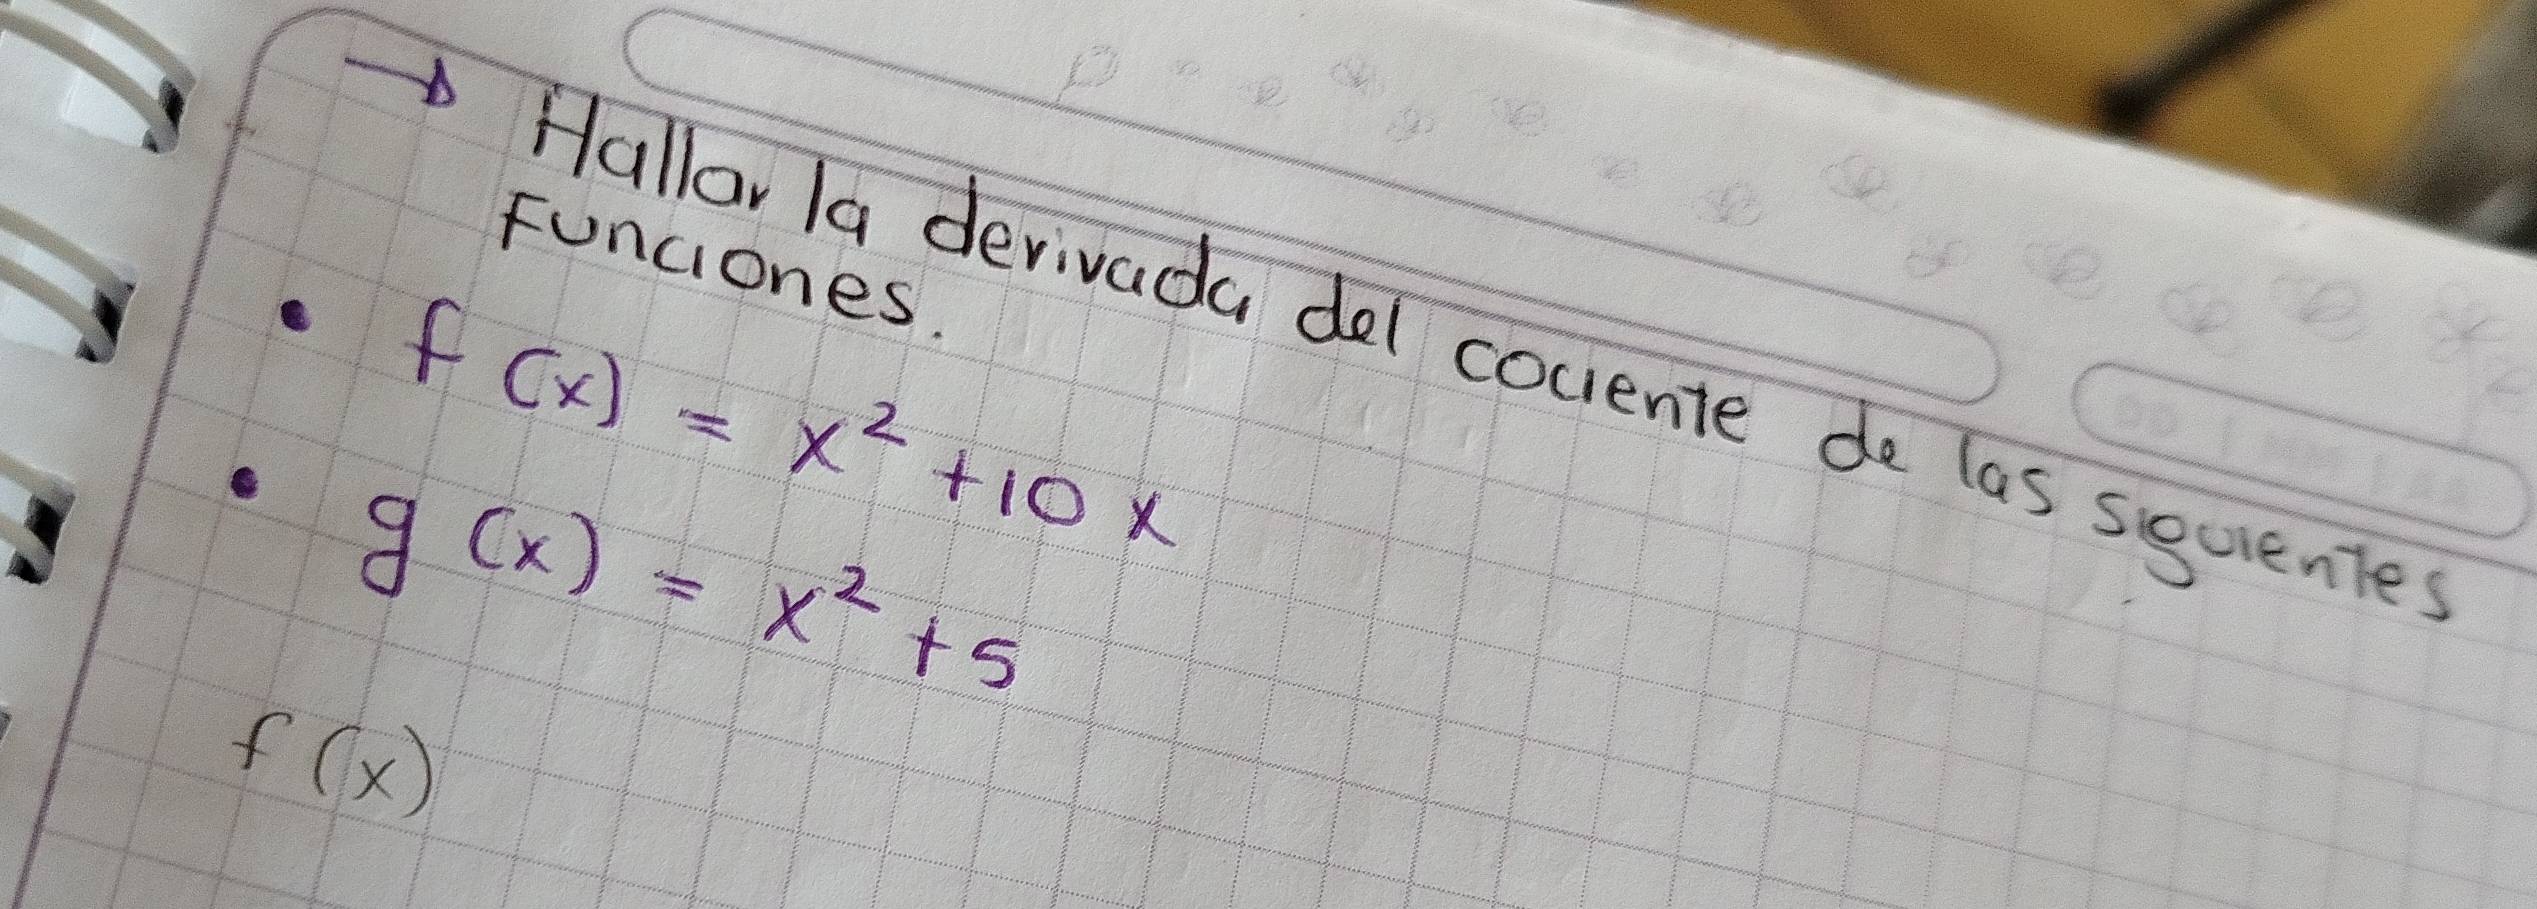 Hallar la derivada del cociente de las siguientes
Funciones.
• f(x) = x² + 10x
• g(x) = x² + 5
f(x)